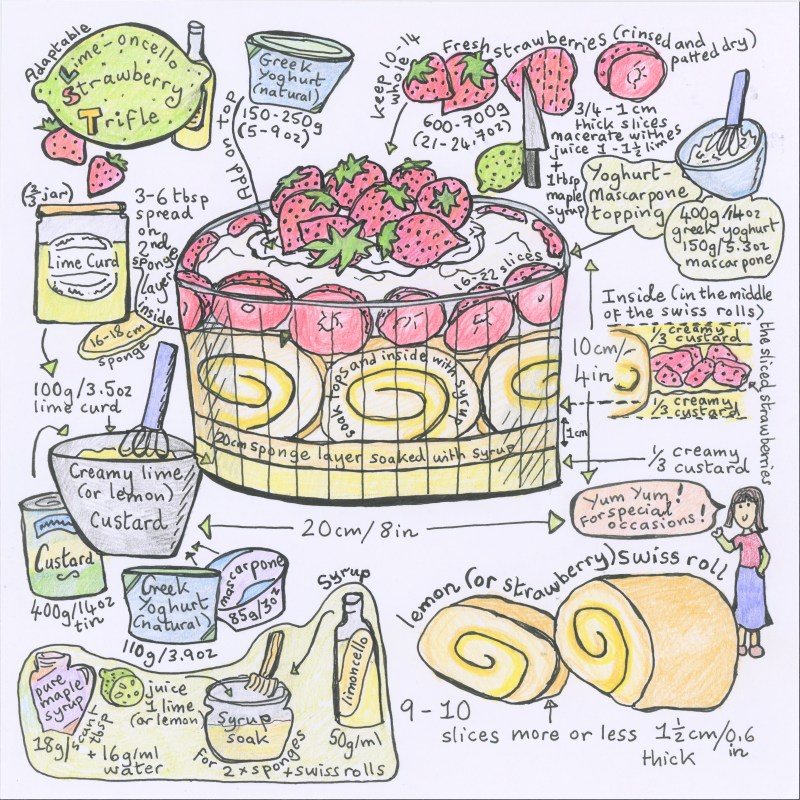 Adaptable
Lime-oncello
Strawberry
Trifle
Greek
Yoghurt
(natural)
150-250g
(5-9oz)
Add on top
keep 10-14
whole
Fresh strawberries (rinsed and
patted dry)
600-700g
(21-24.7oz)
3/4 - 1 cm
thick slices
macerate with
juice 1 - 1½ lime
+
1 tbsp
maple
syrup
Yoghurt-
Mascarpone
topping
400g/14oz
greek yoghurt
150g/5.3oz
mascarpone
(⅔ jar)
Lime Curd
3-6 tbsp
spread
on
2nd
sponge
layer
inside
16-18cm
sponge
100g/3.5oz
lime curd
16-22 slices
soak tops and inside with syrup
20cm sponge layer soaked with syrup
10cm/
4in
1cm
Inside (in the middle
of the swiss rolls)
⅓ creamy
custard
⅓ creamy
custard
the sliced strawberries
⅓ creamy
custard
20cm/8in
Creamy lime
(or lemon)
Custard
Custard
400g/14oz
tin
Greek
Yoghurt
(natural)
110g/3.9oz
mascarpone
85g/3oz
Yum Yum!
For special
occasions!
lemon (or strawberry) swiss roll
9-10
slices more or less 1½cm/0.6
in
thick
Syrup
limoncello
50g/ml
pure
maple
syrup
18g/scant
tbsp
+ 16g/ml
water
juice
1 lime
(or lemon)
Syrup
soak
for
2 x sponges
+ swiss rolls